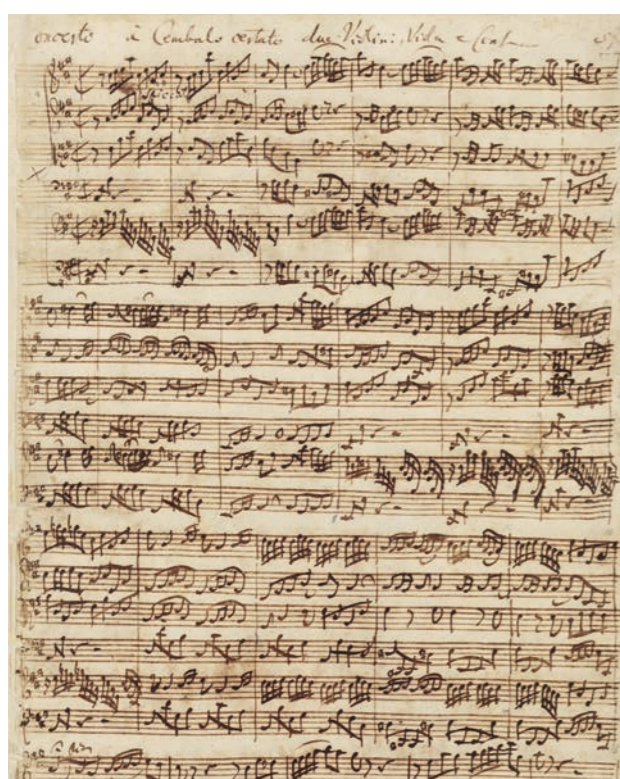 oncerto à Cembalo certato due Violini, Viola e Cont